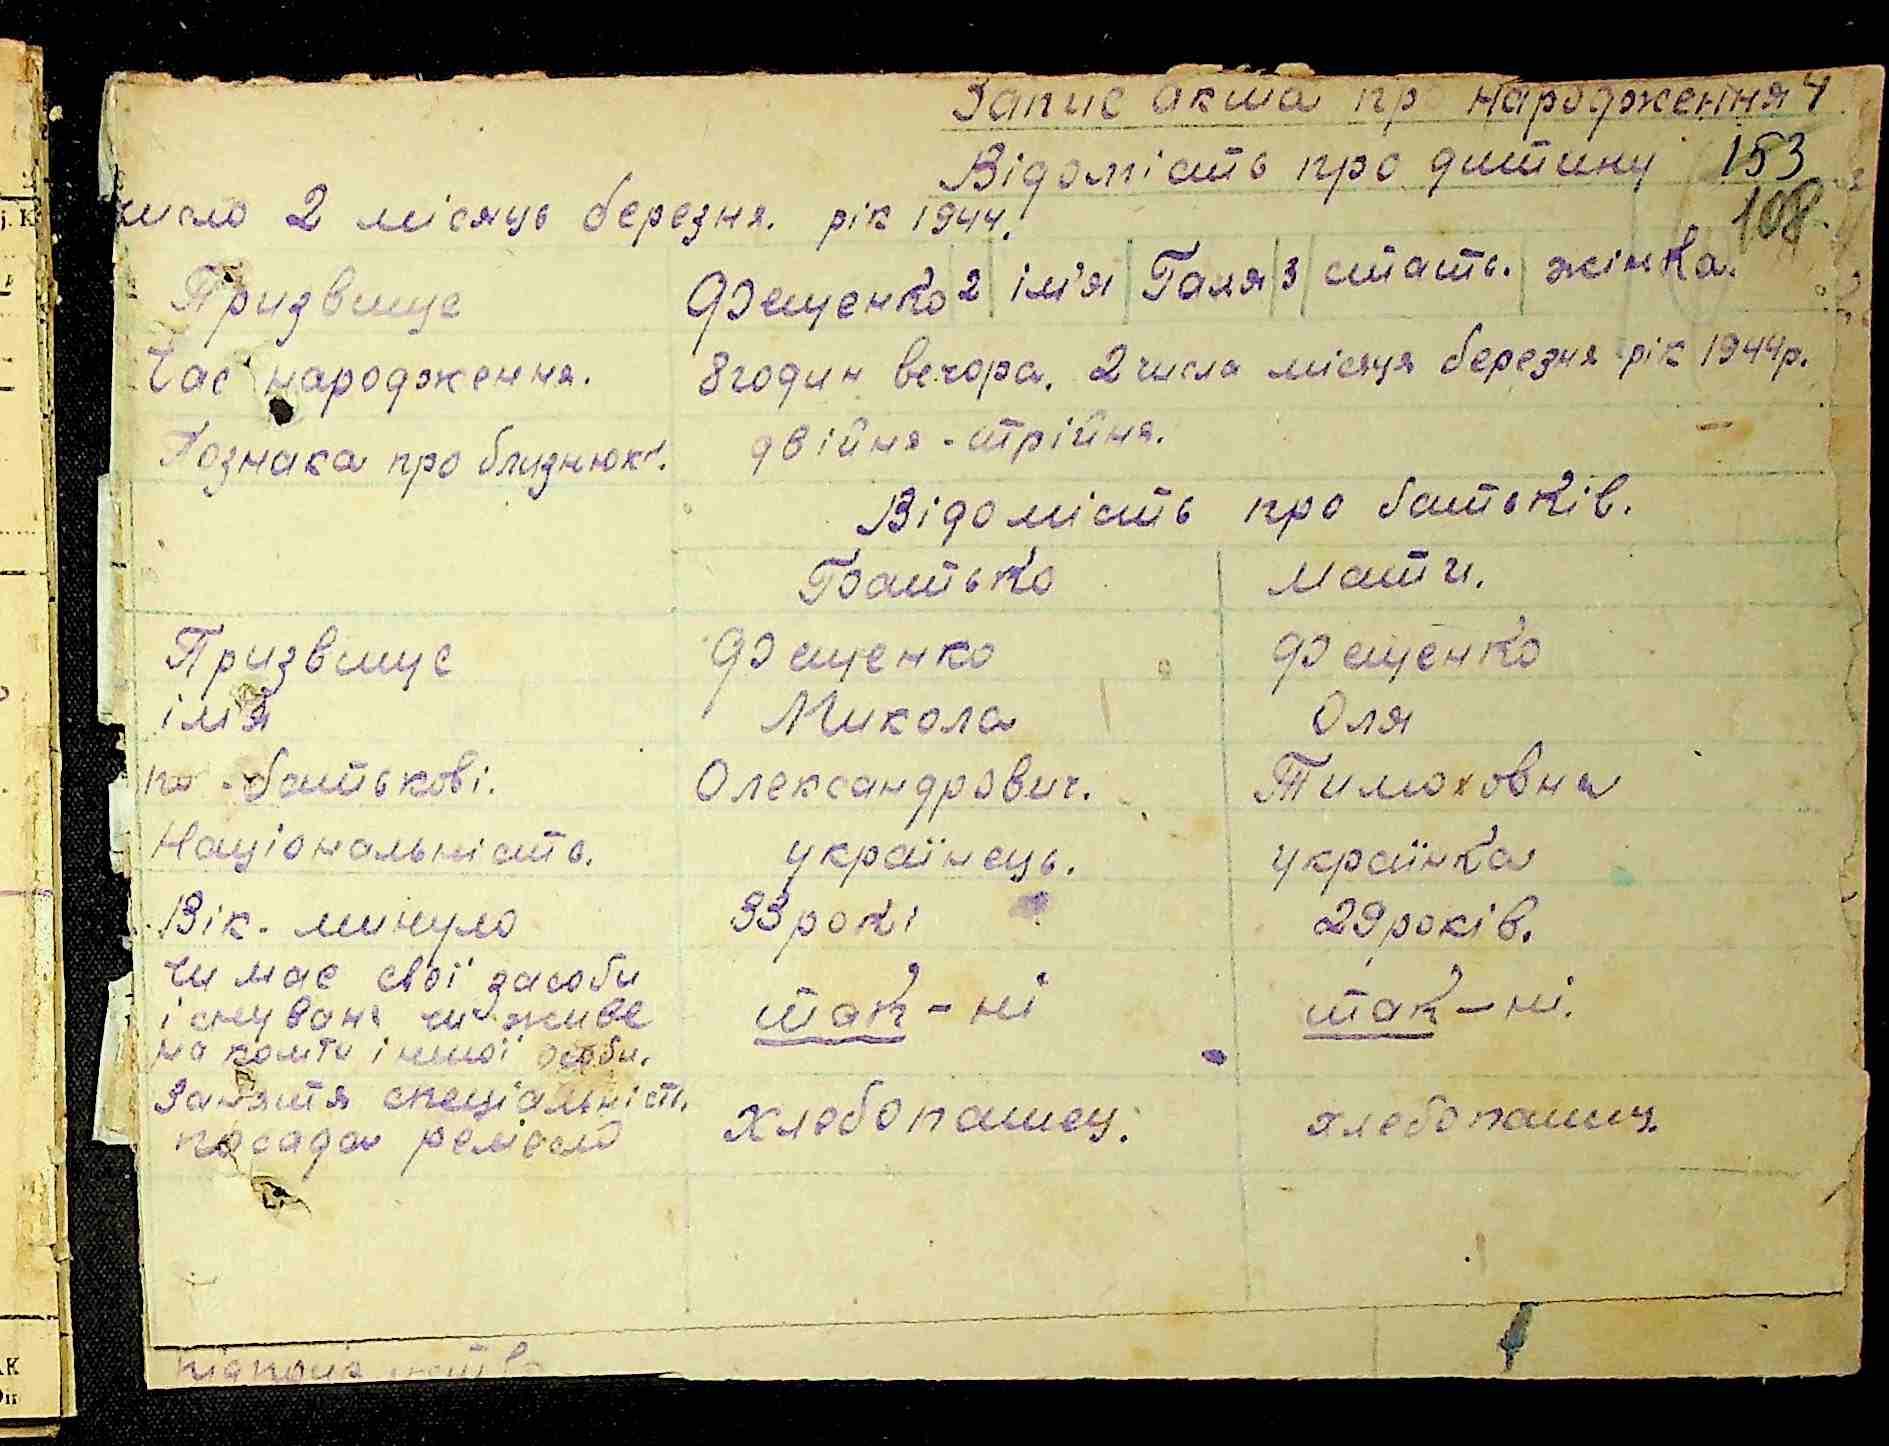 Запис акта про народження 4
Відомість про дитину 153
108
число 2 місяць березня. рік 1944.
Призвище Фещенко 2 ім'я Галя 3 стать. жінка.
Час народження. 8 годин вечора. 2 числа місяця березня рік 1944р.
Познака про близнюки. двійня - трійня. –
Відомість про батьків.
Батько мати.
Призвище Фещенко Фещенко
ім'я Микола Оля
по-батькові. Олександрович. Тимоховна
Національність. українець. українка
Вік. минуло 33 рокі 29 років.
чи має свої засоби
існування чи живе так - ні так - ні.
на кошти іншої особи.
Заняття спеціальність,
посада ремесло хлебопашец. хлебопашец.